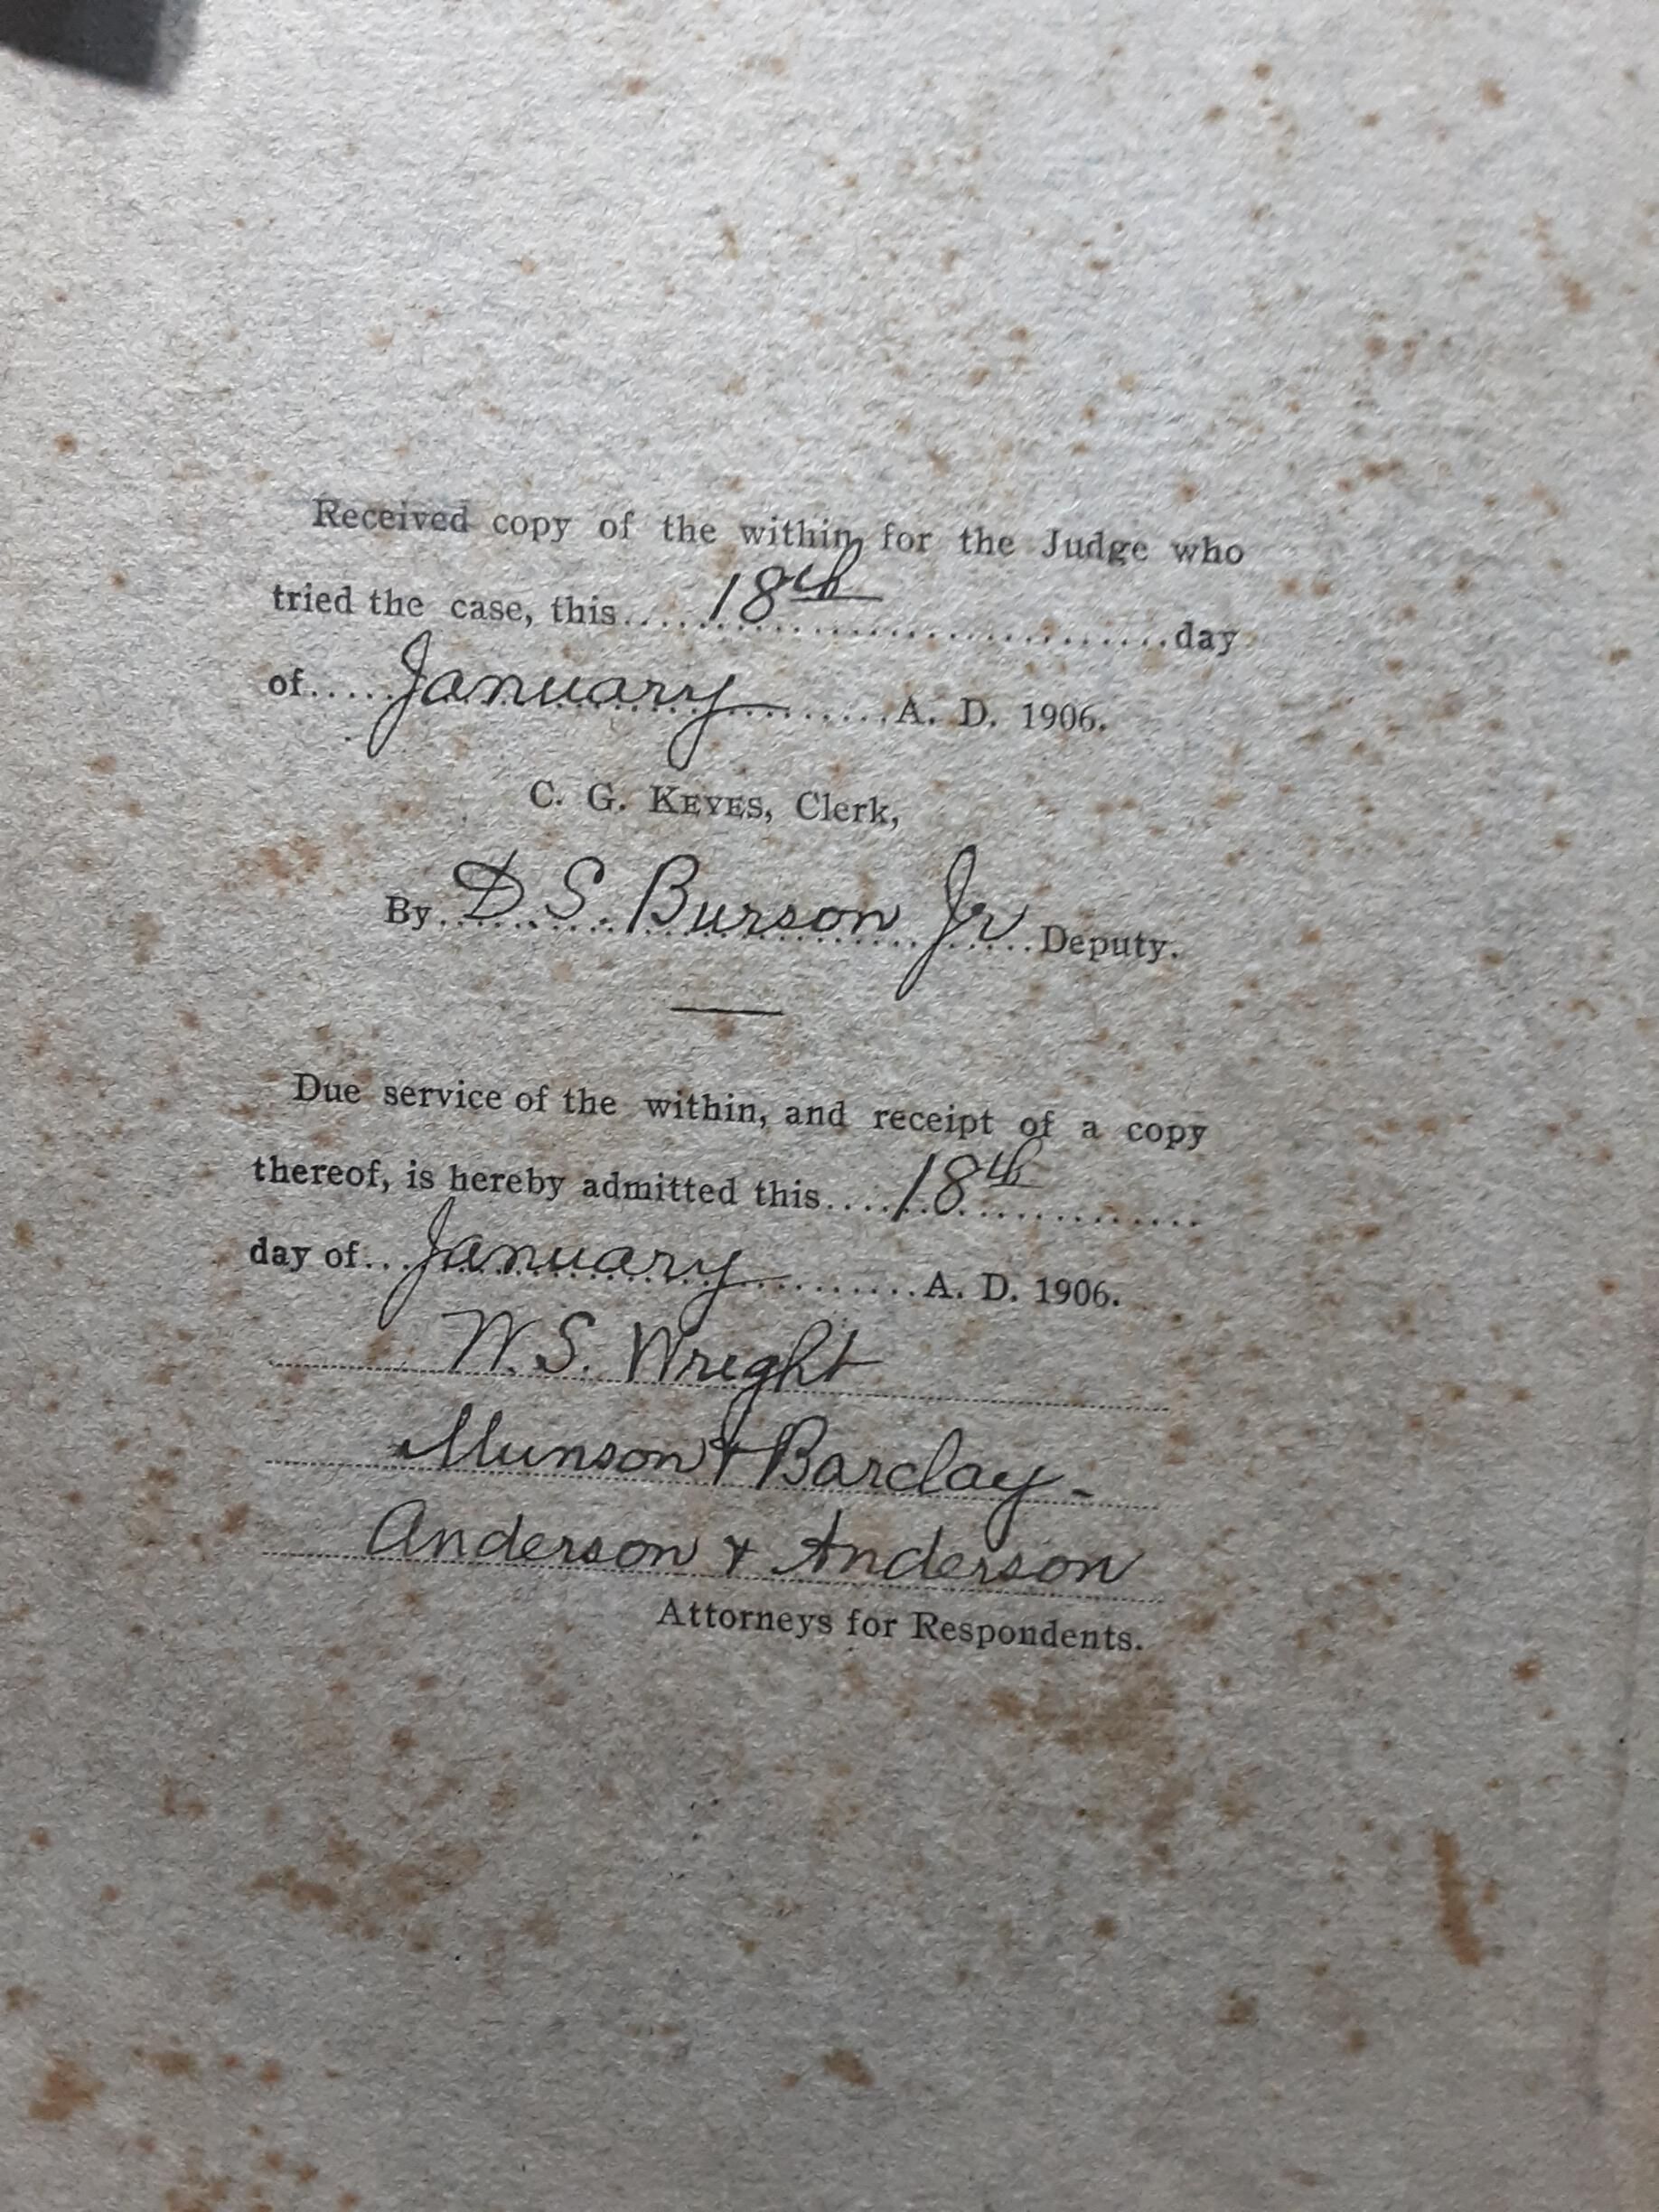 Received copy of the within for the Judge who
tried the case, this....18th............................day
of.....January..........A. D. 1906.
C. G. KEYES, Clerk,
By.D. S. Burson Jr..Deputy.
Due service of the within, and receipt of a copy
thereof, is hereby admitted this....18th............
day of...January..........A. D. 1906.
W. S. Wright
Munson & Barclay -
Anderson & Anderson
Attorneys for Respondents.